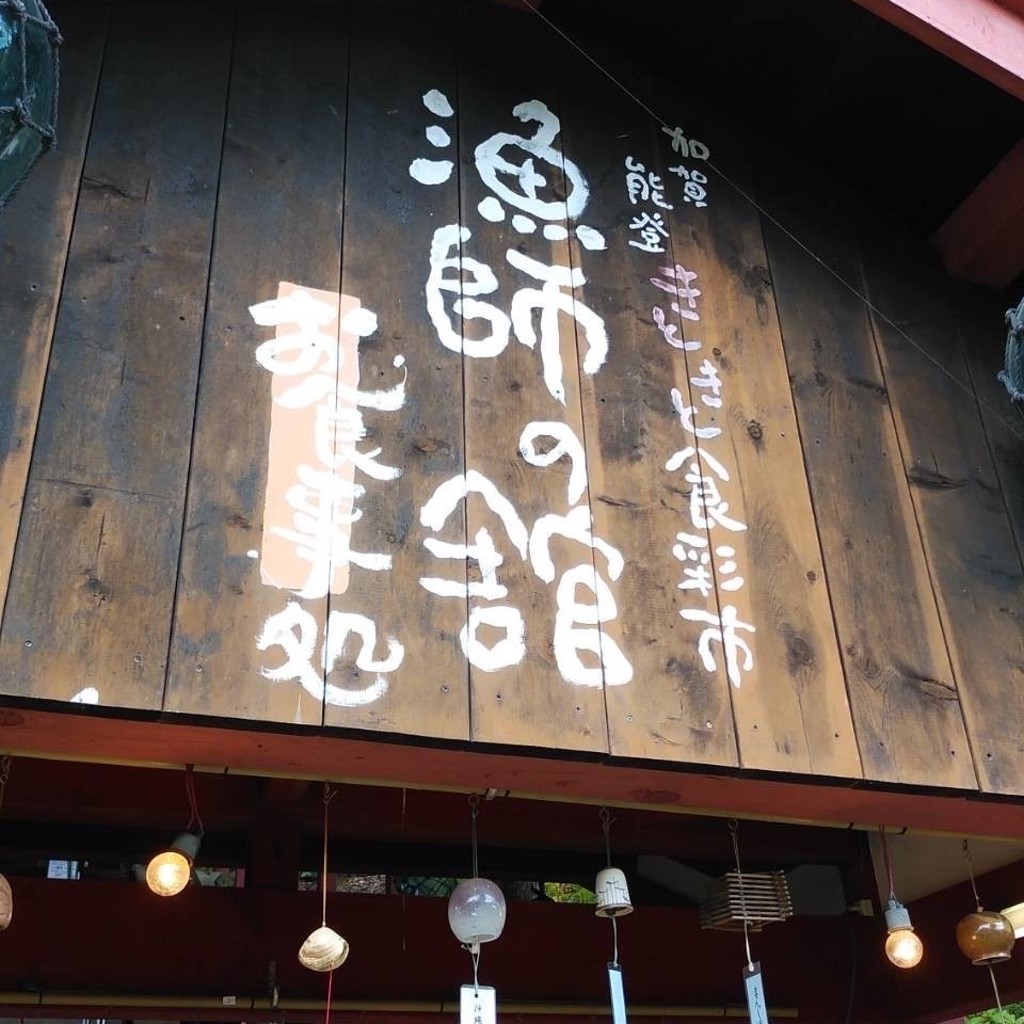 加賀
能登
きときと食彩市
漁師の館
お食事処